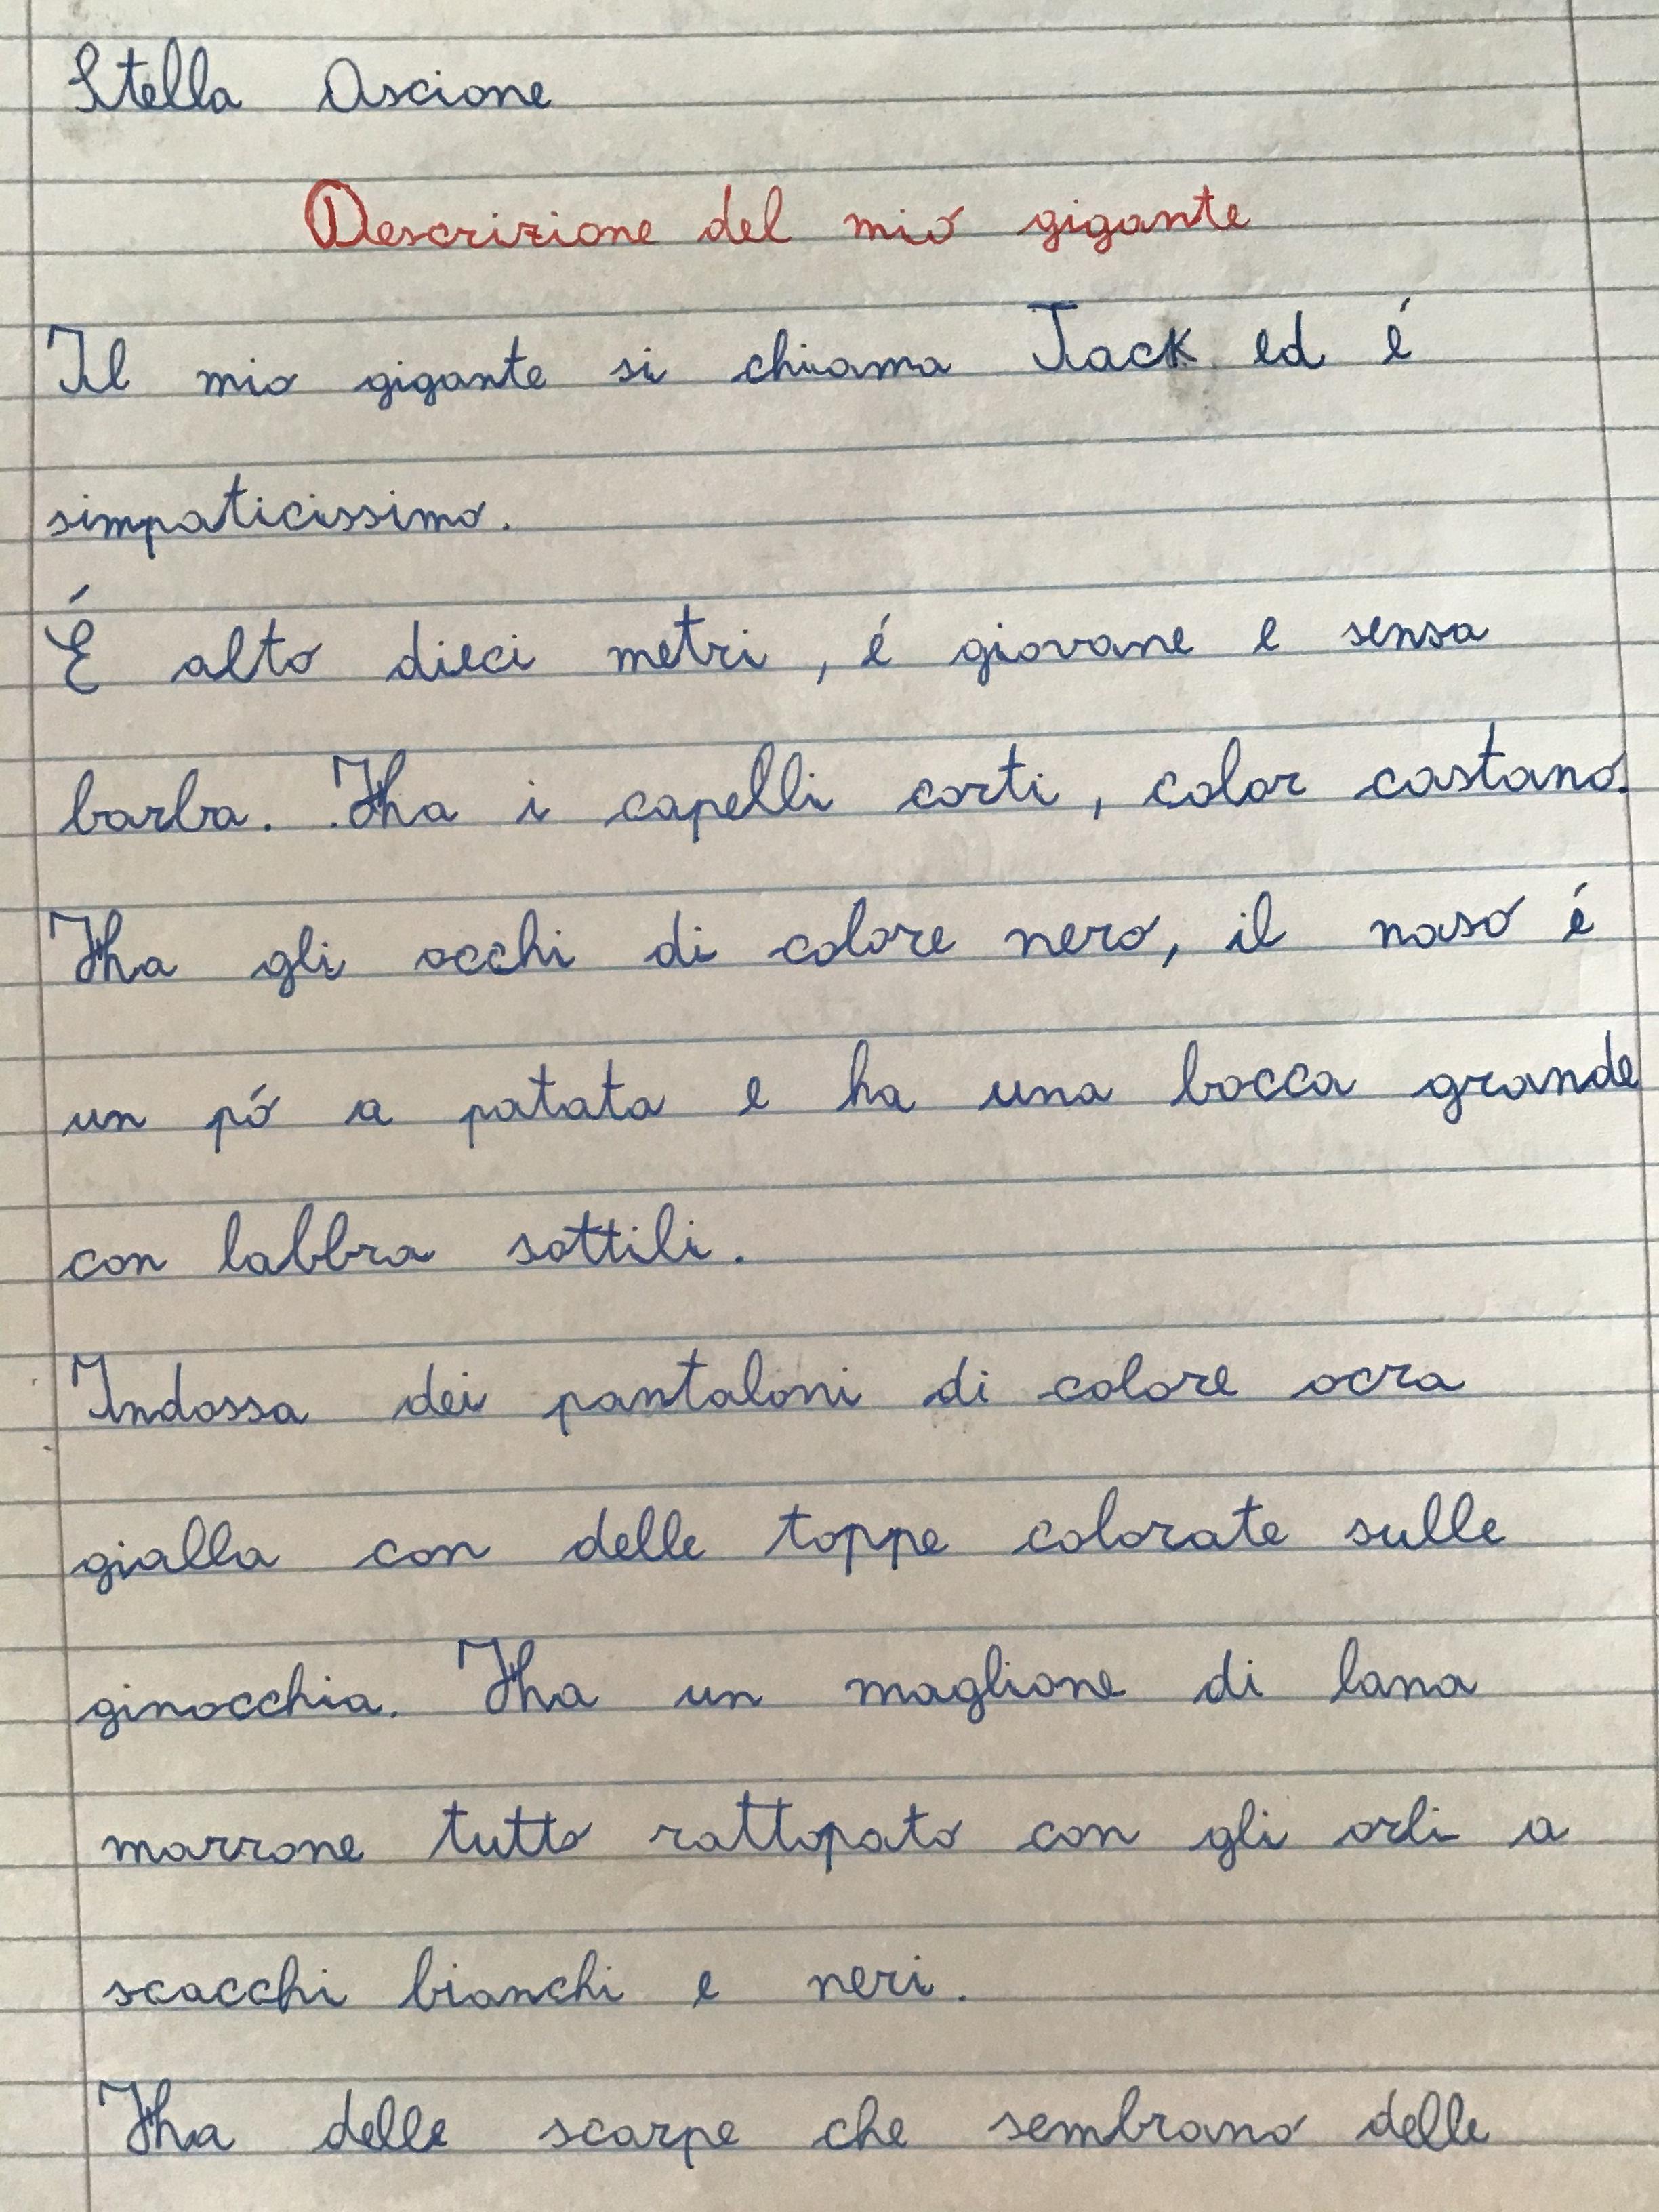 Stella Ascione
Descrizione del mio gigante
Il mio gigante si chiama Jack ed é
simpaticissimo.
É alto dieci metri, é giovane e sensa
barba. Ha i capelli corti, color castano.
Ha gli occhi di colore nero, il naso é
un pó a patata e ha una bocca grande
con labbra sottili.
Indossa dei pantaloni di colore ocra
gialla con delle toppe colorate sulle
ginocchia. Ha un maglione di lana
marrone tutto rattopato con gli orli a
scacchi bianchi e neri.
Ha delle scarpe che sembrano delle